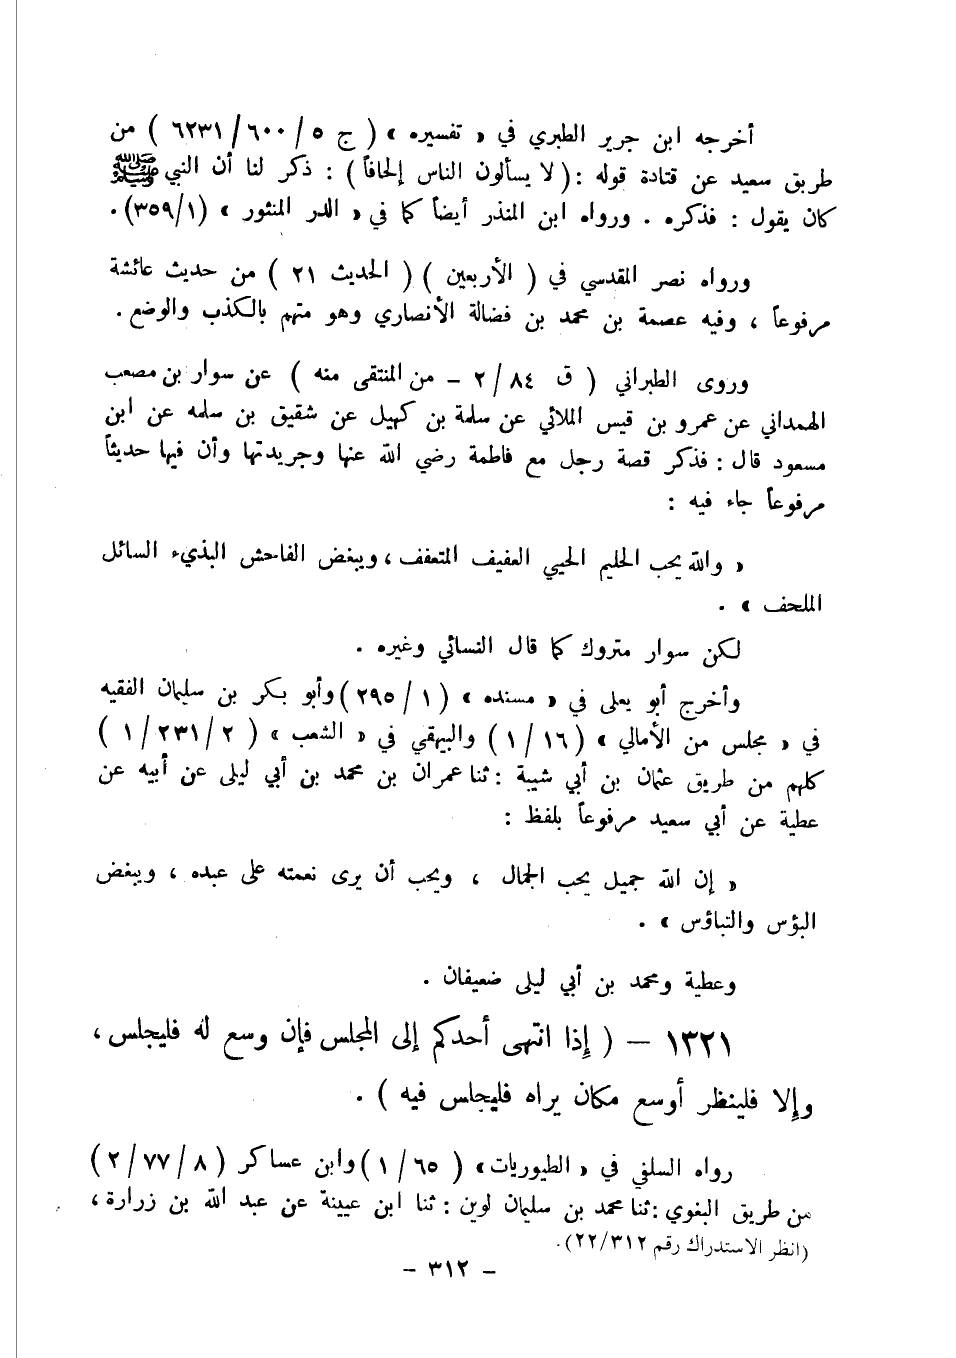 أخرجه ابن جرير الطبري في « تفسيره » ( ج ٥ / ٦٠٠ / ٦٢٣١ ) من
طريق سعيد عن قتادة قوله : ( لا يسألون الناس إلحافاً ) : ذكر لنا أن النبي ﷺ
كان يقول : فذكره . ورواه ابن المنذر أيضاً كما في « الدر المنثور » (١/ ٣٥٩).
ورواه نصر المقدسي في ( الأربعين ) ( الحديث ٢١ ) من حديث عائشة
مرفوعاً ، وفيه عصمة بن محمد بن فضالة الأنصاري وهو متهم بالكذب والوضع .
وروى الطبراني ( ق ٨٤ / ٢ – من المنتقى منه ) عن سوار بن مصعب
الهمداني عن عمرو بن قيس الملائي عن سلمة بن كهيل عن شقيق بن سلمه عن ابن
مسعود قال : فذكر قصة رجل مع فاطمة رضي الله عنها وجريدتها وأن فيها حديثاً
مرفوعاً جاء فيه :
« والله يحب الحليم الحيي العفيف المتعفف ، ويبغض الفاحش البذيء السائل
الملحف » .
لكن سوار متروك كما قال النسائي وغيره .
وأخرج أبو يعلى في « مسنده » ( ١ / ٢٩٥ ) وأبو بكر بن سليمان الفقيه
في « مجلس من الأمالي » ( ١٦ / ١ ) والبيهقي في « الشعب » ( ٢ / ٢٣١ / ١ )
كلهم من طريق عثمان بن أبي شيبة : ثنا عمران بن محمد بن أبي ليلى عن أبيه عن
عطية عن أبي سعيد مرفوعاً بلفظ :
« إن الله جميل يحب الجمال ، ويحب أن يرى نعمته على عبده ، ويبغض
البؤس والتباؤس » .
وعطية ومحمد بن أبي ليلى ضعيفان .
١٣٢١ – ( إذا انتهى أحدكم إلى المجلس فإن وسع له فليجلس ،
وإلا فلينظر أوسع مكان يراه فليجلس فيه ) .
رواه السلفي في « الطيوريات » ( ٦٥ / ١ ) وابن عساكر ( ٨ / ٧٧ / ٢ )
من طريق البغوي : ثنا محمد بن سليمان لوين : ثنا ابن عيينة عن عبد الله بن زرارة ،
(انظر الاستدراك رقم ٢٢/٣١٢).
– ٣١٢ –